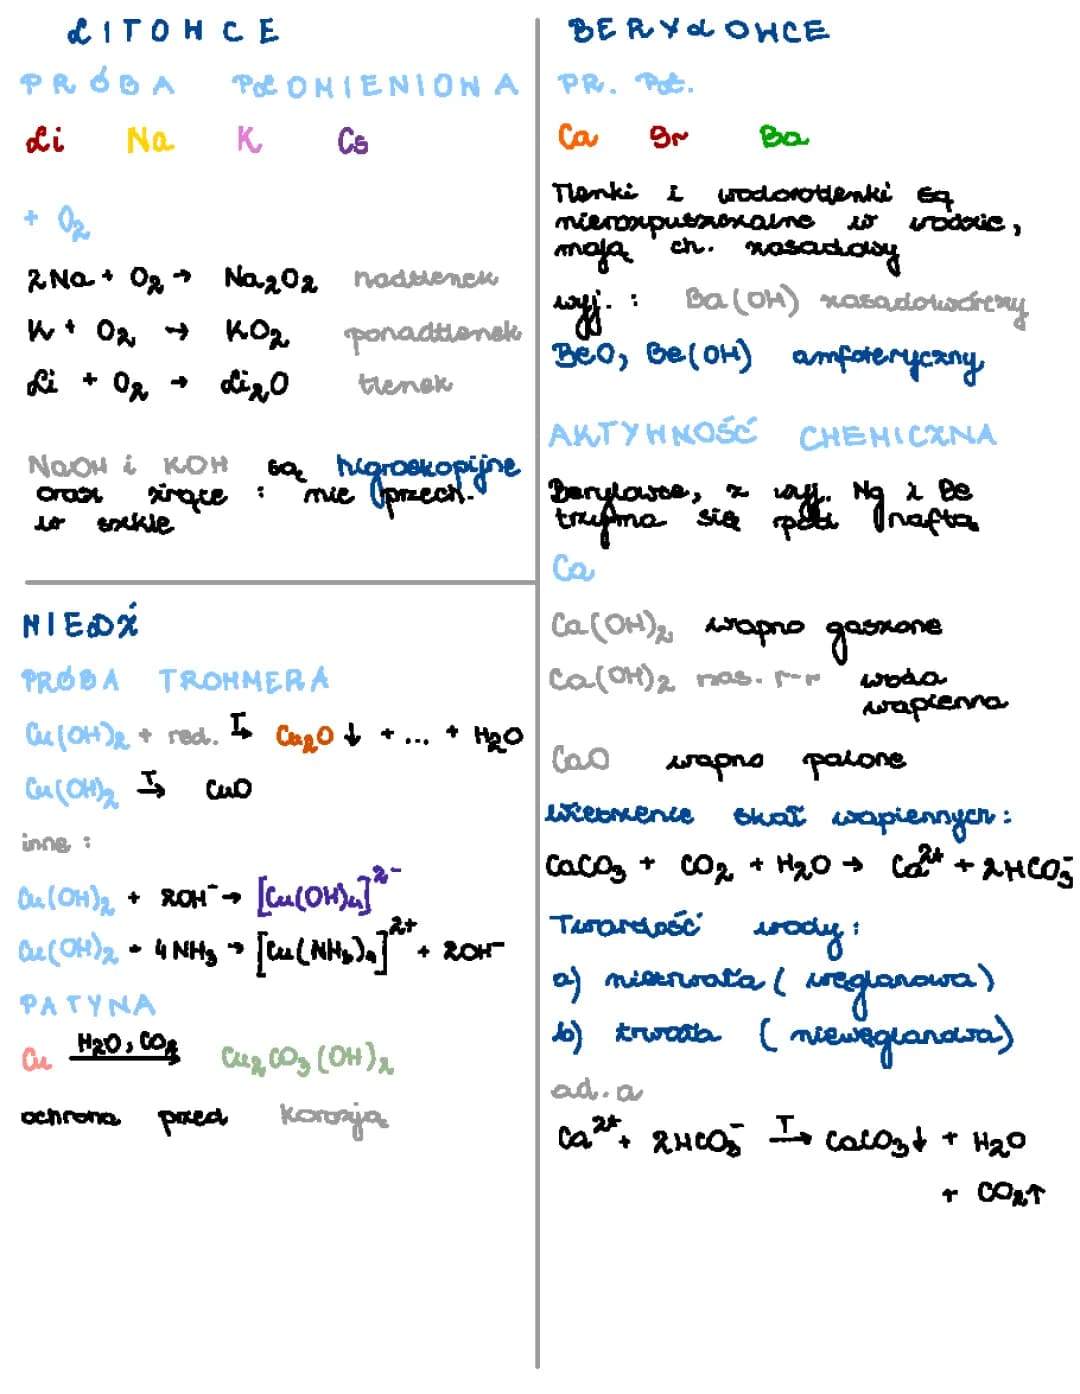 LITOWCE
PRÓBA PŁOMIENIOWA
Li Na K Cs
+ O₂
2Na + O₂ → Na₂O₂ nadtlenek
K + O₂ → KO₂ ponadtlenek
Li + O₂ → Li₂O tlenek
NaOH i KOH są higroskopijne
oraz żrące : nie przech.
w szkle
MIEDŹ
PRÓBA TROMMERA
Cu(OH)₂ + red. T→ Cu₂O ↓ + ... + H₂O
Cu(OH)₂ T→ CuO
inne :
Cu(OH)₂ + 2OH⁻ → [Cu(OH)₄]²⁻
Cu(OH)₂ + 4NH₃ → [Cu(NH₃)₄]²⁺ + 2OH⁻
PATYNA
Cu H₂O, CO₂→ Cu₂CO₃(OH)₂
ochrona przed korozją
BERYLOWCE
PR. PŁ.
Ca Sr Ba
Tlenki i wodorotlenki są
nierozpuszczalne w wodzie,
mają ch. zasadowy
wyj. : Ba(OH) zasadotwórczy
BeO, Be(OH) amfoteryczny
AKTYWNOŚĆ CHEMICZNA
Berylowce, z wyj. Mg i Be
trzyma się pod naftą
Ca
Ca(OH)₂ wapno gaszone
Ca(OH)₂ nas. r-r woda
wapienna
CaO wapno palone
Wietrzenie skał wapiennych :
CaCO₃ + CO₂ + H₂O → Ca²⁺ + 2HCO₃⁻
Twardość wody :
a) nietrwała ( węglanowa )
b) trwała ( niewęglanowa )
ad. a
Ca²⁺ + 2HCO₃⁻ T→ CaCO₃↓ + H₂O
+ CO₂↑